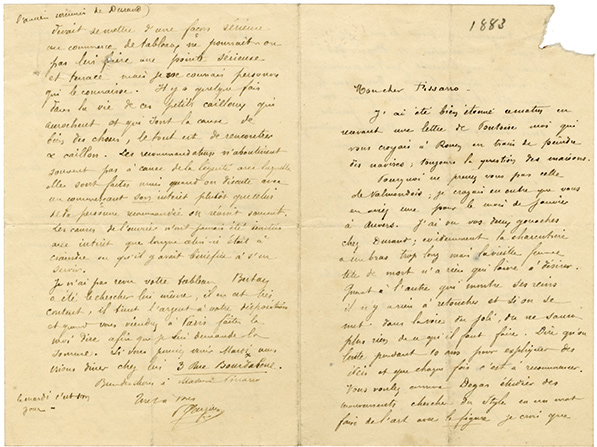 1883
Mon cher Pissarro
J'ai été bien étonné ce matin en
recevant une lettre de Pontoise moi qui
vous croyais à Rouen en train de peindre
des navires; toujours la question des maisons.
Pourquoi ne prenez vous pas celle
de Valmondois; je croyais en outre que vous
en aviez une pour le mois de Janvier
à Auvers. J'ai vu vos deux gouaches
chez Durand; évidemment la charcutière
a un bras trop long mais la vieille femme
tête de mort n'a rien qui laisse à désirer.
Quant à l'autre qui montre ses reins
il n'y a rien à retoucher et si on se
met dans la voie du joli, on ne saurait
plus rien de ce qu'il faut faire. Dire qu'on
lutte pendant 10 ans pour expliquer des
idées et que chaque fois c'est à recommencer.
Vous voulez comme Degas étudier des
mouvements chercher du style en un mot
faire de l'art avec la figure je crois que
l'ancien de Durand)
devrait se mettre d'une façon sérieuse
au commerce de tableaux ne pourrait on
pas lui faire une pointe sérieuse
et tenace mais je ne connais personne
qui le connaisse. Il y a quelque fois
dans la vie de ces petits cailloux qui
accrochent et qui sont la cause de
bien des choses, le tout est de rencontrer
ce caillou. Les recommandations n'aboutissent
souvent pas à cause de la légèreté avec laquelle
elle sont faites aussi quand on discute avec
un commerçant son intérêt plutôt que celui
de la personne recommandée on réussit souvent.
Les canons de l'ouvrier n'ont jamais été
son intérêt que lorsque celui-ci était à
craindre ou qu'il y avait bénéfice à s'en
servir.
Je n'ai pas revu votre tableau Bertaux
a été le chercher lui même, il en est très
content, il tient l'argent à votre disposition
et quand vous viendrez à Paris faites le
moi dire afin que je lui demande la
somme. Si vous pouvez venir Mardi nous
irions dîner chez lui 3 Rue Bourdaloue.
Bien des choses à Madame Pissarro
Tout à vous
P Gauguin
le mardi c'est son
jour